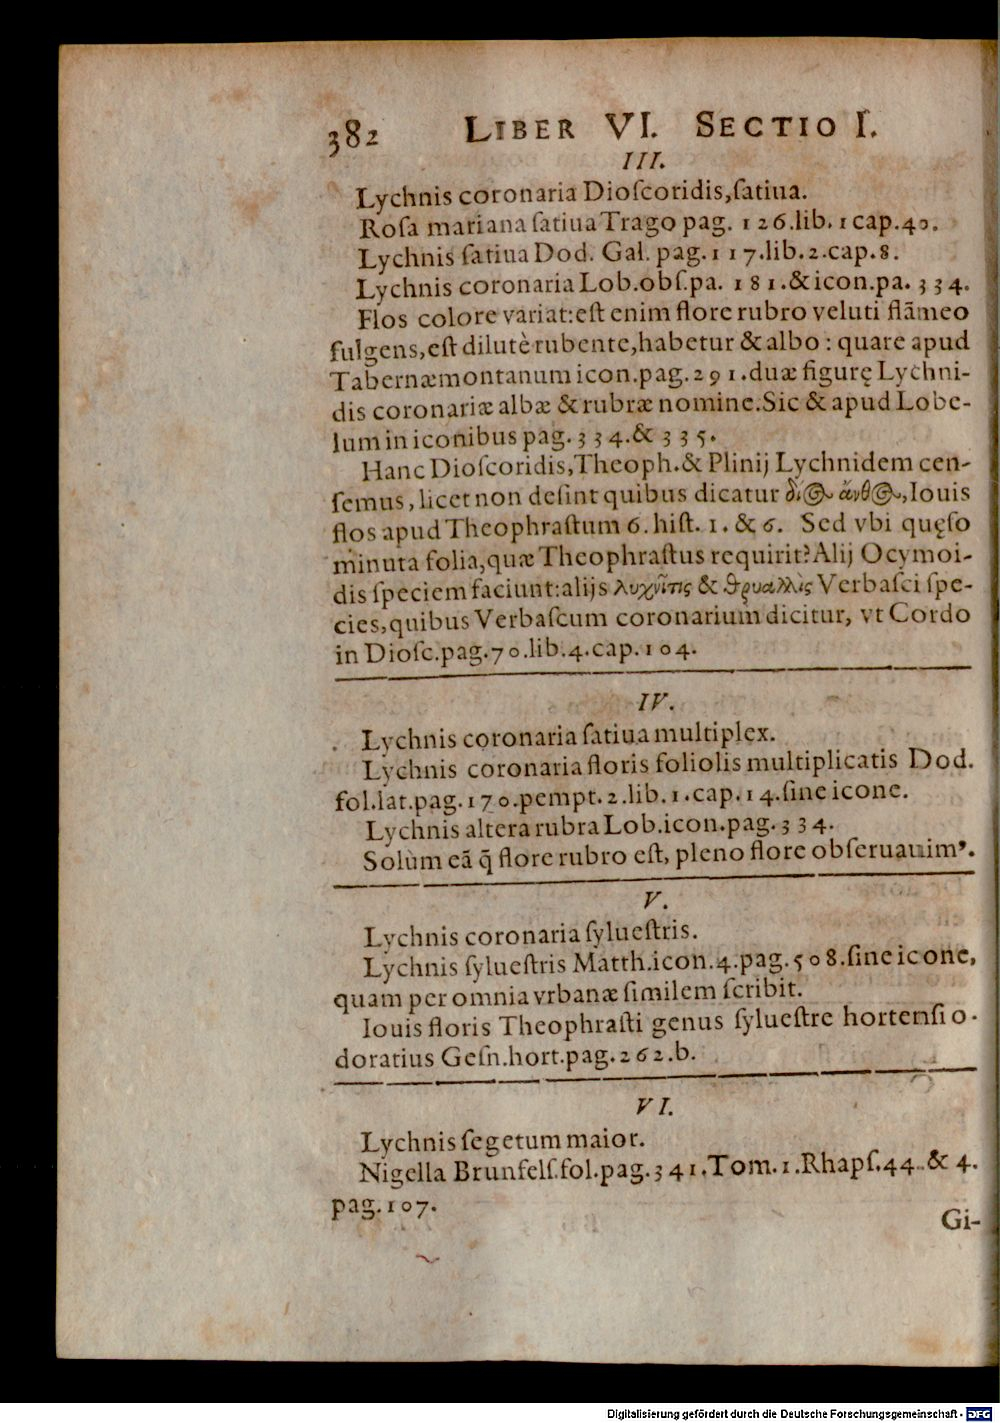 382 LIBER VI. SECTIO I.
III.
Lychnis coronaria Dioſcoridis,ſatiua.
Roſa mariana ſatiua Trago pag. 126.lib. 1 cap.40.
Lychnis ſatiua Dod. Gal. pag.117.lib.2.cap.8.
Lychnis coronaria Lob.obſ.pa. 181.& icon.pa. 334.
Flos colore variat:eſt enim flore rubro veluti flãmeo
fulgens,eſt dilutè rubente,habetur & albo : quare apud
Tabernæmontanum icon.pag.291.duæ figurę Lychni-
dis coronariæ albæ & rubræ nomine.Sic & apud Lobe-
lum in iconibus pag.334.& 335.
Hanc Dioſcoridis,Theoph.& Plinij Lychnidem cen-
ſemus, licet non deſint quibus dicatur δίος ἄνθος,Iouis
flos apud Theophraſtum 6. hiſt. 1. & 6. Sed vbi quęſo
minuta folia,quæ Theophraſtus requirit? Alij Ocymoi-
dis ſpeciem faciunt:alijs λυχνῖτις & θρυαλλὶς Verbaſci ſpe-
cies,quibus Verbaſcum coronarium dicitur, vt Cordo
in Dioſc.pag.70.lib.4.cap.104.
IV.
Lychnis coronaria ſatiua multiplex.
Lychnis coronaria floris foliolis multiplicatis Dod.
fol.lat.pag.170.pempt.2.lib.1.cap.14.ſine icone.
Lychnis altera rubra Lob.icon.pag.334.
Solùm eã q̃ flore rubro eſt, pleno flore obſeruauimꝰ.
V.
Lychnis coronaria ſylueſtris.
Lychnis ſylueſtris Matth.icon.4.pag.508.ſine icone,
quam per omnia vrbanæ ſimilem ſcribit.
Iouis floris Theophraſti genus ſylueſtre hortenſi o-
doratius Geſn.hort.pag.262.b.
VI.
Lychnis ſegetum maior.
Nigella Brunfelſ.fol.pag.341.Tom.1.Rhapſ.44.& 4.
pag.107.
Gi-
Digitalisierung gefördert durch die Deutsche Forschungsgemeinschaft - DFG